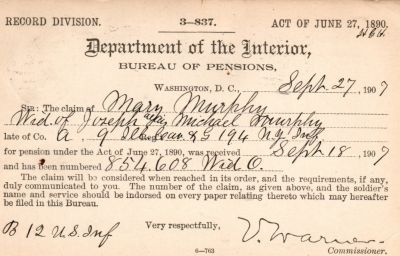 RECORD DIVISION. 3—837. ACT OF JUNE 27, 1890.
Department of the Interior,
BUREAU OF PENSIONS,
WASHINGTON, D. C., Sept 27, 1907
SIR: The claim of Mary Murphy
Wid of Joseph alias Michael Murphy
late of Co. A. 9 & G 194 N.Y. Inf
for pension under the Act of June 27, 1890, was received Sept 18, 1907
and has been numbered 854.608 Wid O.
The claim will be considered when reached in its order, and the requirements, if any,
duly communicated to you. The number of the claim, as given above, and the soldier's
name and service should be indorsed on every paper relating thereto which may hereafter
be filed in this Bureau.
B 12 U.S. Inf Very respectfully,
V. Warner
6—763 Commissioner.